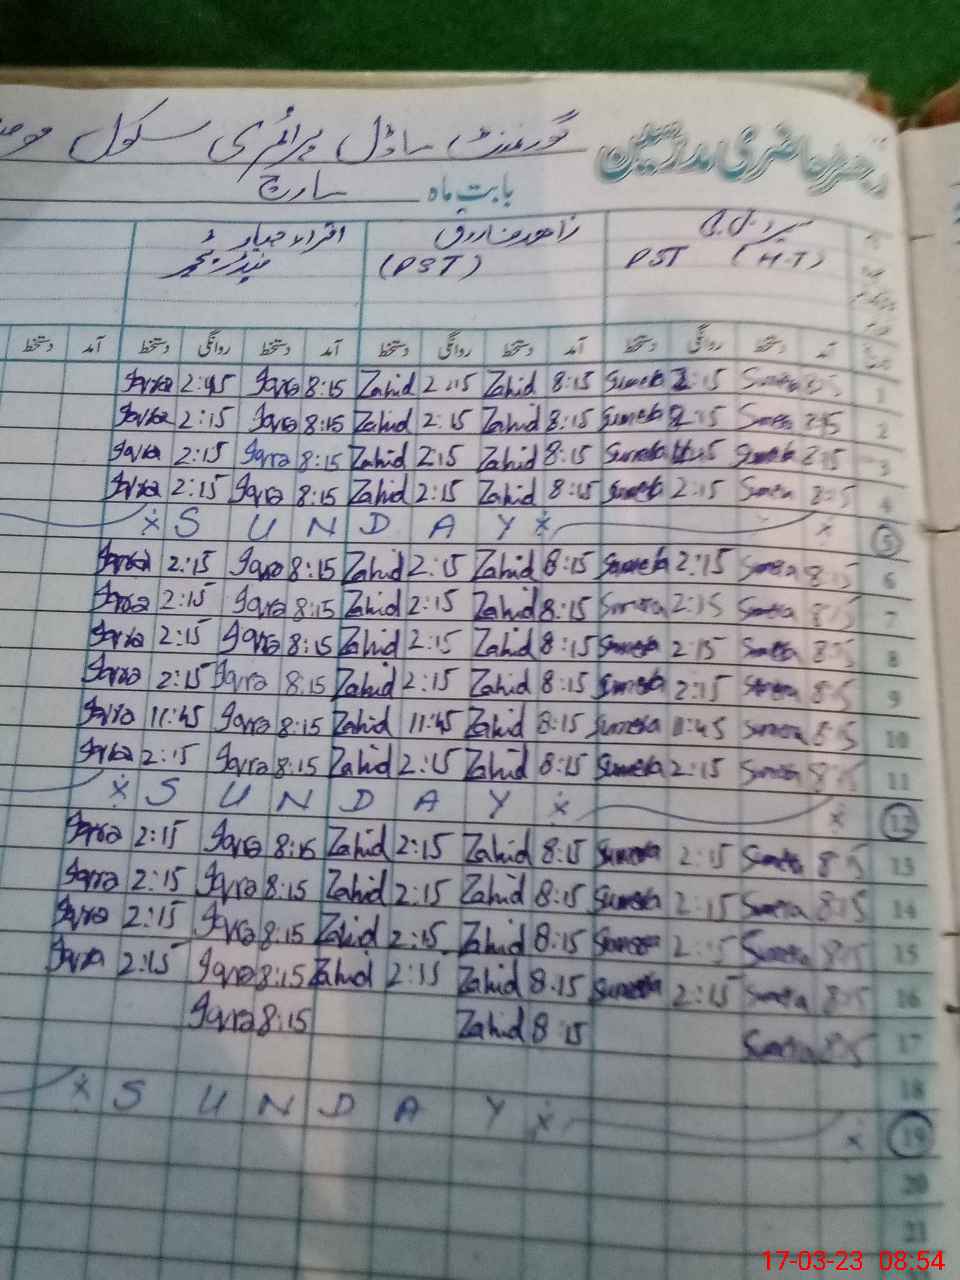 رجسٹر حاضری مدرسین گورنمنٹ ماڈل پرائمری سکول
بابت ماہ مارچ
زاھد فاروق اقراء
PST (H.T) (PST)
آمد دستخط روانگی دستخط آمد دستخط روانگی دستخط آمد دستخط روانگی دستخط آمد دستخط
1 8:15 Sumera 2:15 Sumera 8:15 Zahid 2:15 Zahid 8:15 Iqra 2:45 Iqra
2 8:15 Sumera 2:15 Sumera 8:15 Zahid 2:15 Zahid 8:15 Iqra 2:15 Iqra
3 8:15 Sumera Sumera 8:15 Zahid 2:15 Zahid 8:15 Iqra 2:15 Iqra
4 8:15 Sumera 2:15 Sumera 8:15 Zahid 2:15 Zahid 8:15 Iqra 2:15 Iqra
5 SUNDAY
6 8:15 Sumera 2:15 Sumera 8:15 Zahid 2:15 Zahid 8:15 Iqra 2:15 Iqra
7 8:15 Sumera 2:15 Sumera 8:15 Zahid 2:15 Zahid 8:15 Iqra 2:15 Iqra
8 8:15 Sumera 2:15 Sumera 8:15 Zahid 2:15 Zahid 8:15 Iqra 2:15 Iqra
9 8:15 Sumera 2:15 Sumera 8:15 Zahid 2:15 Zahid 8:15 Iqra 2:15 Iqra
10 8:15 Sumera 11:45 Sumera 8:15 Zahid 11:45 Zahid 8:15 Iqra 11:45 Iqra
11 8:15 Sumera 2:15 Sumera 8:15 Zahid 2:15 Zahid 8:15 Iqra 2:15 Iqra
12 SUNDAY
13 8:15 Sumera 2:15 Sumera 8:15 Zahid 2:15 Zahid 8:15 Iqra 2:15 Iqra
14 8:15 Sumera 2:15 Sumera 8:15 Zahid 2:15 Zahid 8:15 Iqra 2:15 Iqra
15 8:15 Sumera 2:15 Sumera 8:15 Zahid 2:15 Zahid 8:15 Iqra 2:15 Iqra
16 8:15 Sumera 2:15 Sumera 8:15 Zahid 2:15 Zahid 8:15 Iqra 2:15 Iqra
17 8:15 Sumera 8:15 Zahid 8:15 Iqra
18
19 SUNDAY
20
21
17-03-23 08:54